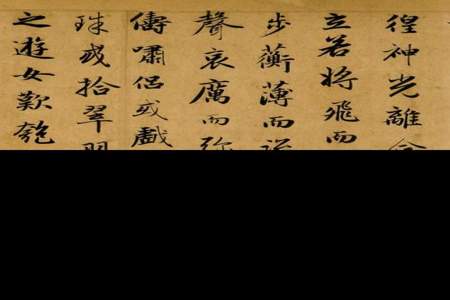 徨神光離
立若將飛而
步蘅薄而
聲哀厲而
儔嘯侶或戲
珠或拾翠
之遊女歎匏